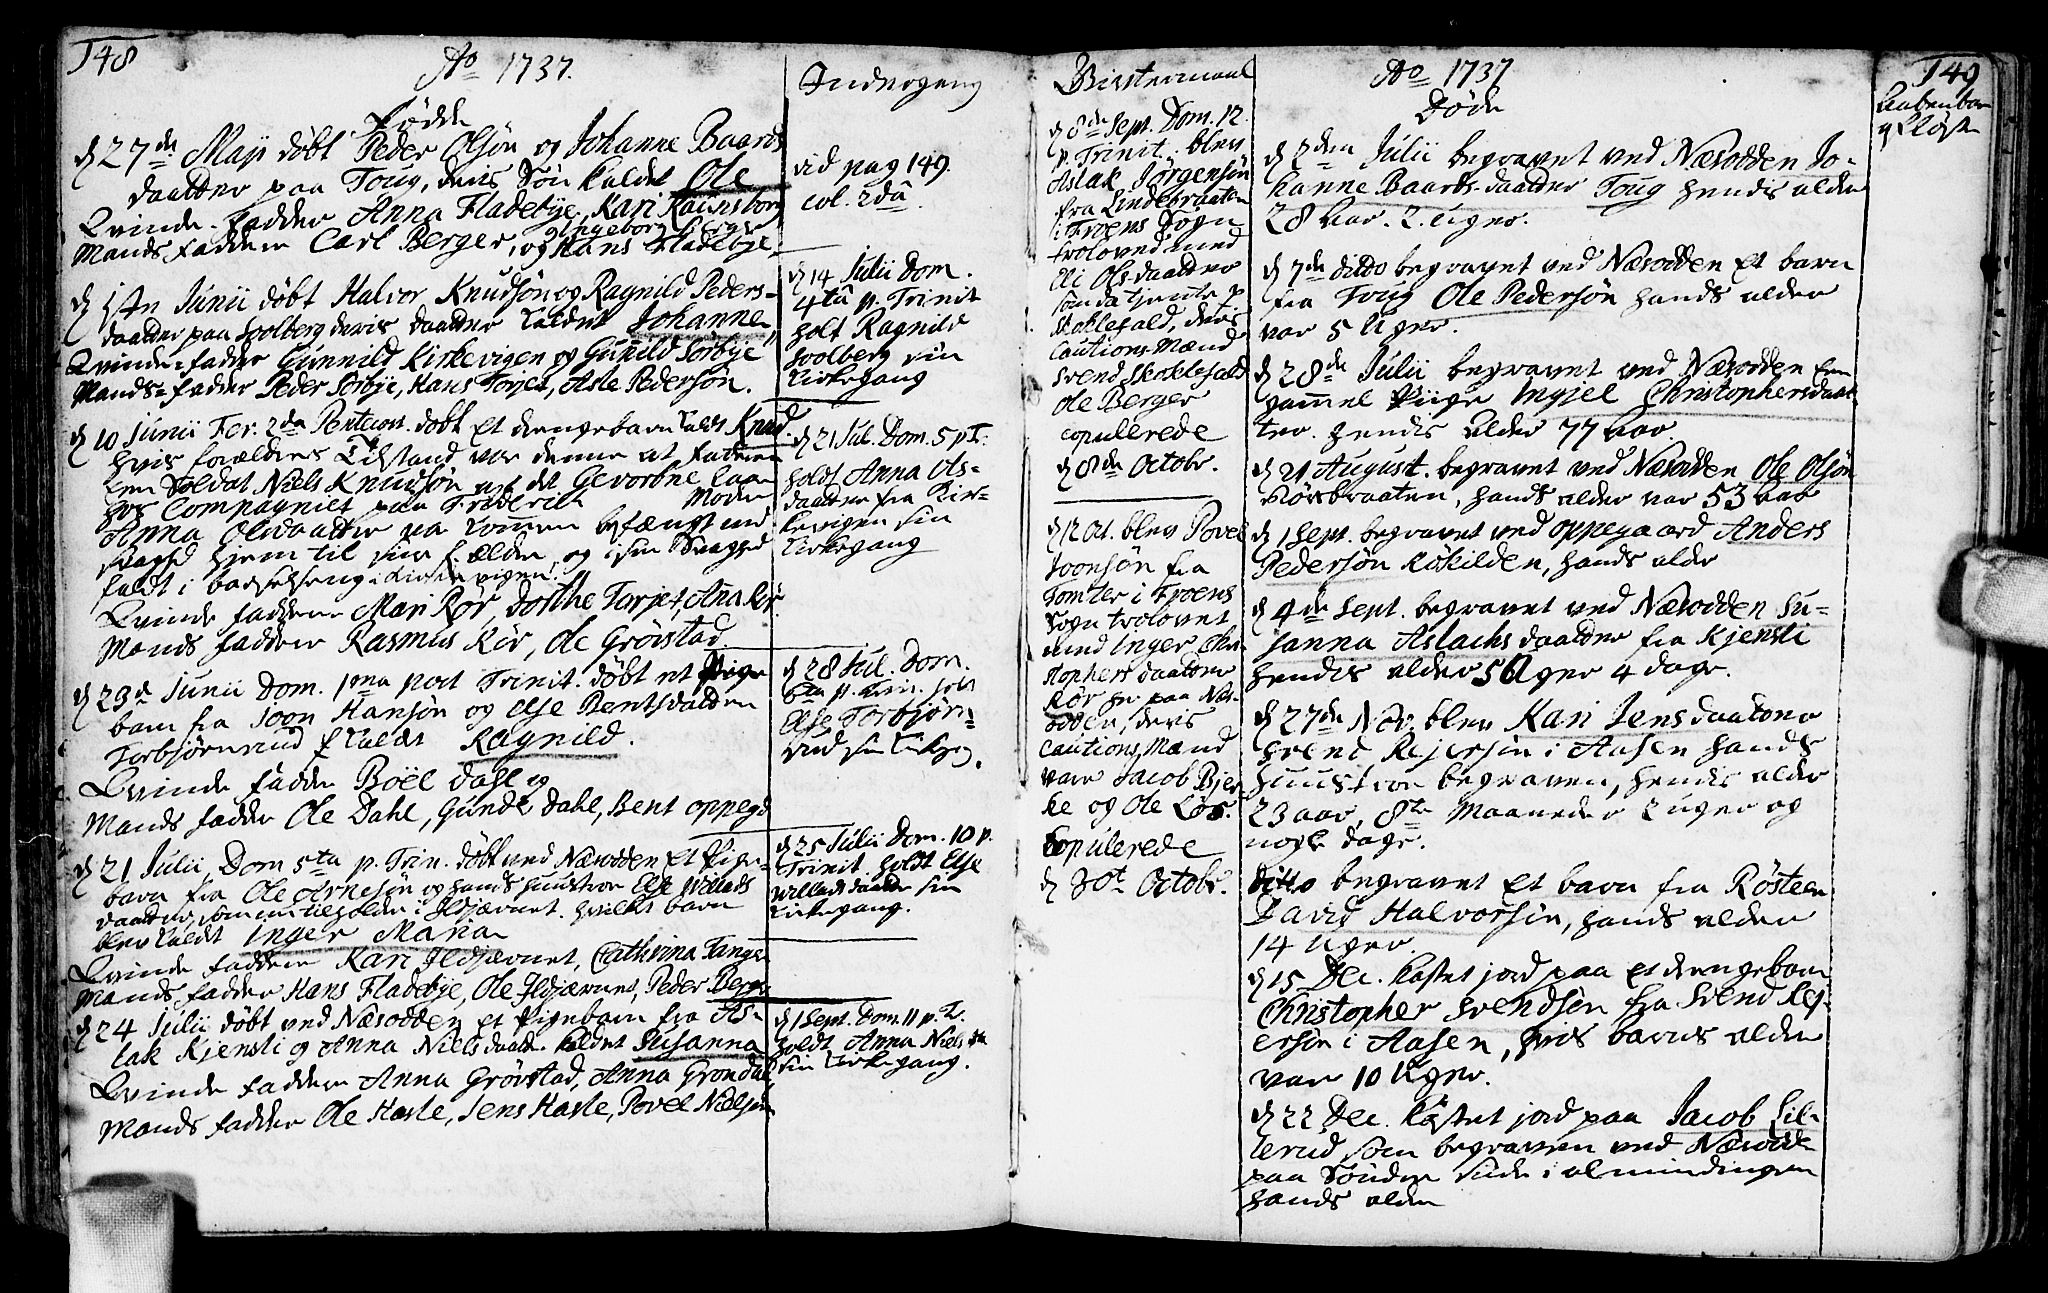 148
Ao 1737.
Fødde
d 27de Maji døbt Peder Olsøn og Johanne Baards
daatter paa Toug, deris Søn kaldet Ole
Qvinde-fadder Anna Fladebye, Kari Ravnsborg
og Ingeborg Berger
Mands fadder Carl Berger, og Hans Fladebye,
d 1ste Junii døbt Halvor Knudsøn og Ragnild Peders-
daatter paa Spolberg deris daatter kaldet Johanne
Qvinde-fadder Gunnild Kirkevigen og Gunild Sørbye
Mands-fadder Peder Sørbye, Hans Torjet, Asle Pedersøn.
d 10 Junii Fer. 2da Pentecost. døbt et drengebarn kaldt Knud
hvis forældres Tilstand var denne at faderen
een Soldat Niels Knudsøn ved det Gevorbne
hos Compagniet paa Friderich Moder
Anna Olsdaatter paa kommen befængt med
svaghed hjem til sine forældre, og i sin Svaghed
faldt i barselseng i Kirkevigen.
Qvinde fadder Mari Rør, Dorthe Torjet, Ana Rør
Mands fadder Rasmus Rør, Ole Grøvstad
d 23d Junii Dom. 1ma post Trinit. døbt et Pige
barn fra Joon Hansøn og Else Bentsdatter
Torbjørnsrud kaldt Ragnild.
Qvinde fadder Boël Dahl og
Mands fadder Ole Dahl, Gunde Dahl, Bent oppegd
d 21 Julii Dom 5ta p. Trin. døbt ved Næsodden et Pige-
barn fra Ole Arnesøn og hands huustroe Else Willads
daatter som nu tilholder i Ildjærnet. hvilket barn
blev kaldt Inger Maria
Qvinde fadder Kari Ildjærnet, Cathrina Tangen
Mands fadder Hans Fladebye, Ole Ildjærnet, Peder Berger
d 24 Julii døbt ved Næsodden et Pigebarn fra As-
lak Kjensli og Anna Nielsdaatter kaldet Susanna
Qvinde fadder Anna Grøvstad, Anna Grøndal
Mands fadder Ole Hasle, Jens Hasle, Povel Nielsøn
Indergang
vid pag 149.
col. 2dâ.
d 14 Julii Dom.
4tâ p. Trinit
holt Ragnild
Spolberg sin
Kirkegang
d 21 Jul. Dom. 5 p T.
holdt Anna Ols-
daatter fra Kir-
kevigen sin
Kirkegang
d 28 Jul. Dom.
6ta p. Trin. holt
Else Torbjørn-
srud sin Kirkeg.
d 25 Julii Dom. 10 p.
Trinit. holdt Else
Willadsdaatter sin
Kirkegang.
d 1 Sept. Dom. 11 p. T.
holdt Anna Niels dtr
sin Kirkegang.
Bivstermaal
d 8de Sept. Dom. 12
p. Trinit. blev
Aslak Jørgensøn
fra Lindebraaten
i Froens Sogn
trolovet med
Eli Olsdaatter
som da tjente p
Skoklefald, deris
Cautions Mænd
Svend Skoklefald
Ole Berger
copulerede
d 8de Octobr.
d 12 Oct. blev Povel
Joonsøn fra
Tomter i Froens
Sogn trolovet
med Inger Chri-
stophersdaatter
Rør her paa Næs-
odden, deris
Cautions Mænd
vare Jacob Bjer-
ke og Ole Rør.
Copulerede
d 30te Octobr.
Ao 1737
Døde
d 2den Julii begravet ved Næsodden Jo-
hanne Baards-daatter Toug hendis alder
28 Aar. 2. Uger.
d 7de ditto begravet ved Næsodden et barn
fra Toug Ole Pedersøn hands alder
var 5 Uger.
d 28de Julii begravet ved Næsodden een
gammel Piige Ingjel Christophersdaat-
ter. hendis alder 77 Aar
d 21 August. begravet ved Næsodden Ole Olsøn
Rørsbraaten, hands alder var 53 Aar
d 1 Sept. begravet ved Oppegaard Anders
Pedersøn Roskilden, hands alder
d 4de Sept. begravet ved Næsodden Su-
sanna Aslachsdaatter fra Kjensli
hendis alder 5 Uger 4 dage.
d 27de Nov. blev Kari Jensdaatter
Svend Rejersøn i Aasen hands
huustroe begraven, hendis alder
23 aar, 8te Maaneder 2 uger og
nogle dage.
Ditto begravet et barn fra Røsteen
David Halvorsøn, hands alder
14 Uger.
d 15 Dec. kastet jord paa et drengebarn
Christopher Svendsøn fra Svend Rej-
ersøn i Aasen, hvis barns alder
var 10 Uger.
d 22 Dec. kastet jord paa Jacob Lil-
lerud som begraven ved Næsodd-
paa Sønder side i almindingen
hands alder
149